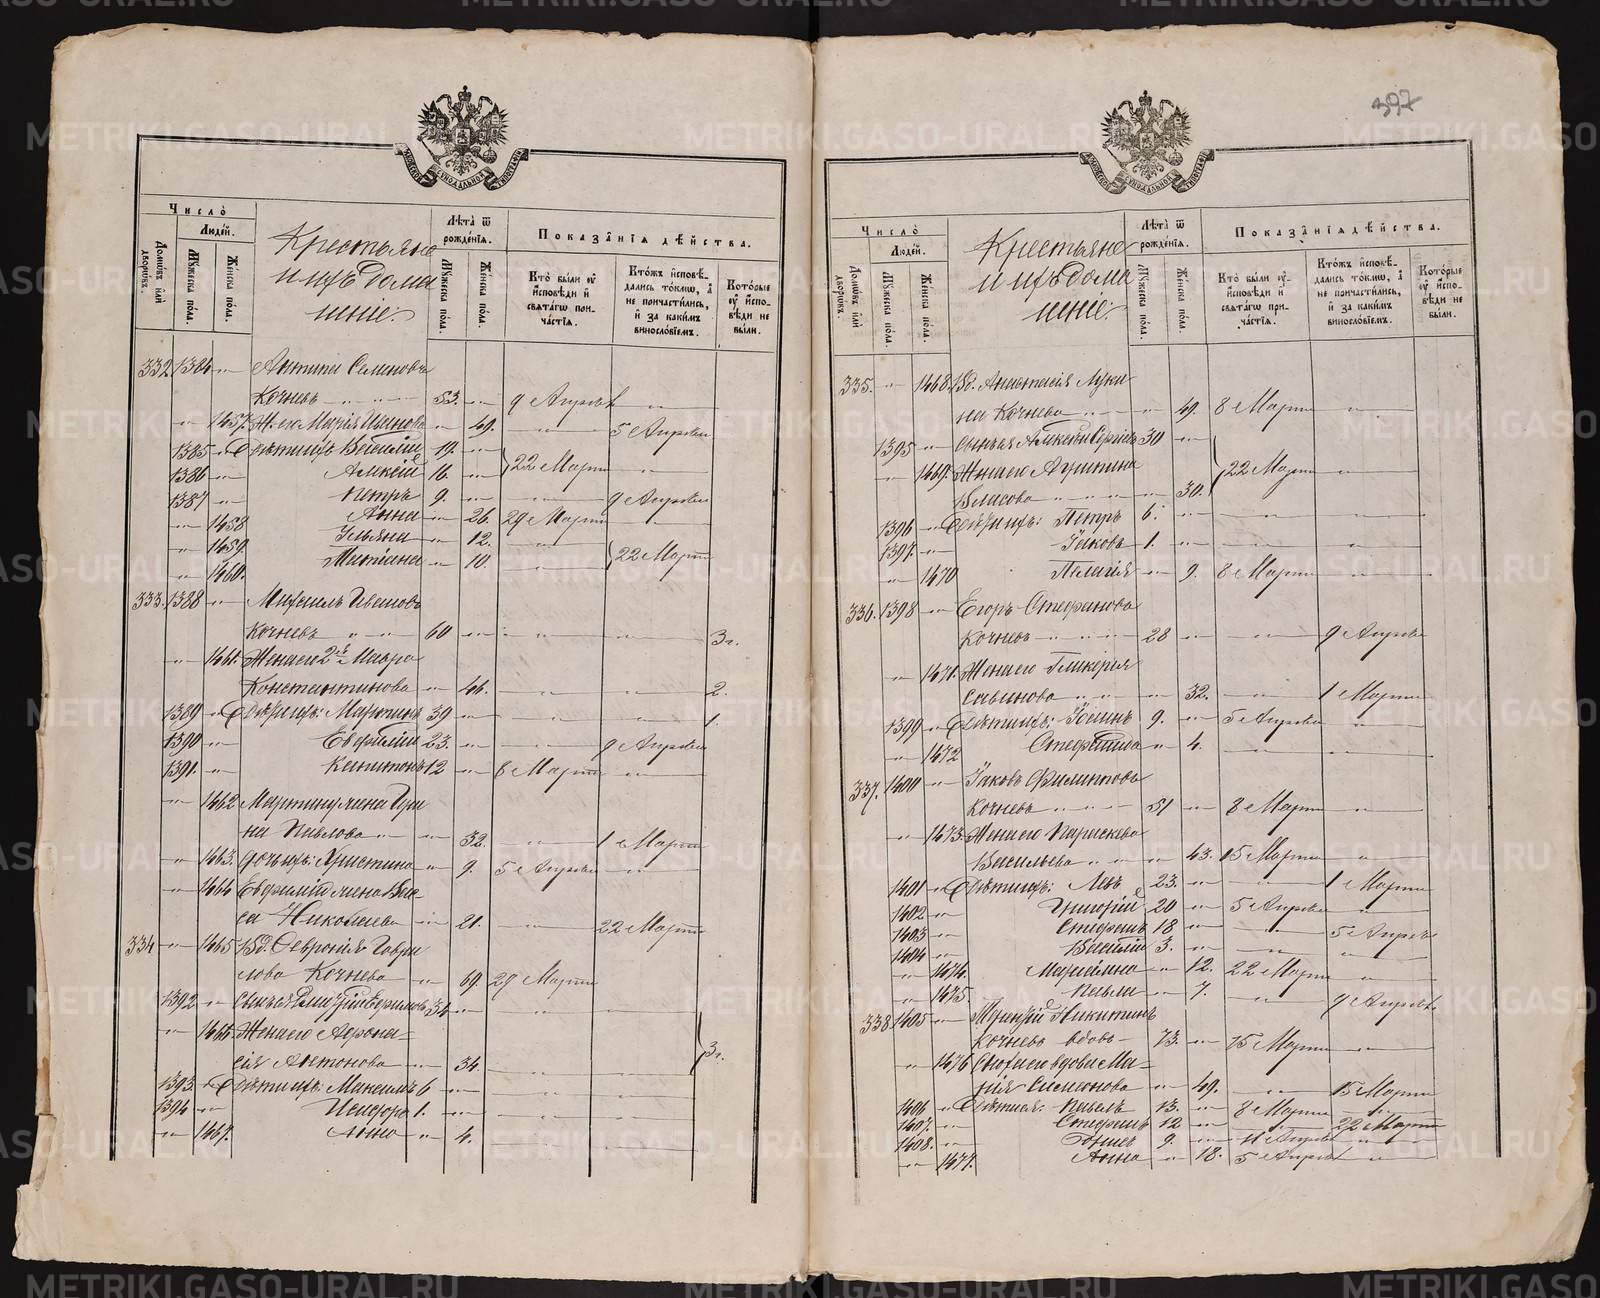 397
Число̀
Людей.
Домѡвъ или дворѡвъ.
Мꙋжеска пола.
Женска пола.
Крестьяне
и ихъ дома
шніе:
Лѣта ѿ
рожденія.
Мꙋжеска пола.
Женска пола.
Показанія дѣйства.
Кто были ᲂу
исповѣди и
свѧтагѡ при-
частія.
Ктожъ исповѣ-
дались токмѡ, а
не причастились,
и за какимъ
винословіемъ.
Которые
ᲂу испо-
вѣди не
были.
332. 1384 -"- Антипа Семеновъ
Кочневъ - " - " - 53. -"- 9 Апрѣля -"-
-"- 1457. Жена Марія Иванова -"- 49. -"- 5 Апрѣля
1385 -"- Дѣти ихъ Василій 19. -"-
1386 -"- Алексѣй 16. -"- 22 Марта -"-
1387 -"- Петръ 9. -"- -"- 9 Апрѣля
-"- 1458 Анна -"- 26. 29 Марта -"-
-"- 1459. Ульяна -"- 12. -"-
-"- 1460. Матрона -"- 10. 22 Марта
333. 1388 -"- Михаилъ Ивановъ
Кочневъ " - " - 60 -"- -"- -"- 3 г.
-"- 1461. Жена его 2я Мавра
Константинова -"- 44. -"- -"- 2.
1389 -"- Дѣти ихъ: Мартинъ 39 -"- -"- -"- 1.
1390 -"- Евфимій 23. -"- -"- 9 Апрѣля
1391. -"- Капитонъ 12 -"- 8 Марта -"-
-"- 1462 Мартину жена Ири
на Павлова -"- -"- 32. -"- 1 Марта
-"- 1463. дочь ихъ: Христина -"- 9. 5 Апрѣля -"-
-"- 1464 Евфимія жена Ва
са Николаева -"- 21. -"- 22 Марта
334 -"- 1465 Вд. Феврония Гаври
лова Кочнева -"- 69. 29 Марта -"-
1392 -"- Сынъ ея Димитрій Ефимовъ 34 -"- -"- -"-
-"- 1466. Жена его Афона-
сія Антонова -"- 34. -"- -"- 3 г.
1393. -"- Дѣти ихъ: Максимъ 6 -"- -"- -"-
1394 -"- Исидоръ 1. -"- -"- -"-
-"- 1467. Анна -"- 4. -"- -"-
Число̀
Людей.
Домѡвъ или дворѡвъ.
Мꙋжеска пола.
Женска пола.
Крестьяне
и ихъ дома
шніе:
Лѣта ѿ
рожденія.
Мꙋжеска пола.
Женска пола.
Показанія дѣйства.
Кто были ᲂу
исповѣди и
свѧтагѡ при-
частія.
Ктожъ исповѣ-
дались токмѡ, а
не причастились,
и за какимъ
винословіемъ.
Которые
ᲂу испо-
вѣди не
были.
335. -"- 1468. Вд. Анастасія Луки
на Кочнева -"- 49. 8 Марта -"-
1395 -"- Сынъ ея Алексѣй Сергіевъ 30 -"-
-"- 1469. Жена его Акулина
Власова - " - " -"- 30. 22 Марта -"-
1396 -"- Дѣти ихъ: Петръ 6. -"- -"- -"-
1397. -"- Іаковъ 1. -"- -"- -"-
-"- 1470 Пелагія -"- 9. 8 Марта -"-
336. 1398 -"- Егоръ Стефановъ
Кочневъ - " - " - 28 -"- -"- 9 Апрѣля
-"- 1471. Жена его Гликерія
Савинова " - " -"- 32. -"- 1 Марта
1399 -"- Дѣти ихъ: Іоаннъ 9. -"- 5 Апрѣля -"-
-"- 1472 Стефанида -"- 4. -"- -"-
337. 1400 -"- Іаковъ Филиповъ
Кочневъ - " - " - 51 -"- 8 Марта -"-
-"- 1473. Жена его Параскева
Васильева " - " -"- 43. 15 Марта -"-
1401 -"- Дѣти ихъ: Левъ 23. -"- -"- 1 Марта
1402 -"- Григорій 20 -"- 5 Апрѣля -"-
1403 -"- Стефанъ 18 -"- -"- 5 Апрѣля
1404 -"- Василій 3. -"- -"- -"-
-"- 1474. Маріамна -"- 12. 22 Марта -"-
-"- 1475. -"- 7. -"- 9 Апрѣля.
338. 1405 -"- Никитинъ
Кочневъ вдовъ - 73. -"- 15 Марта -"-
-"- 1476 Сноха его вдова Ма-
рія Симонова -"- 49. -"- 15 Марта
1406 -"- Дѣти ея: Павелъ 13. -"- 8 Марта -"-
1407. -"- Стефанъ 12 -"- -"- 22 Марта
1408. -"- 9. -"- 11 Апрѣля -"-
-"- 1477. Анна -"- 18. 5 Апрѣля -"-
METRIKI.GASO-URAL.RU